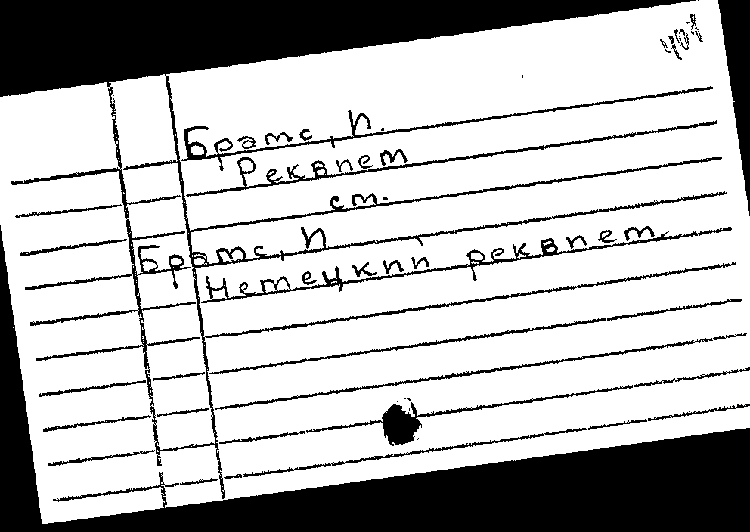 401
Брамс, И.
Реквием
см.
Брамс, И
Немецкий реквием.